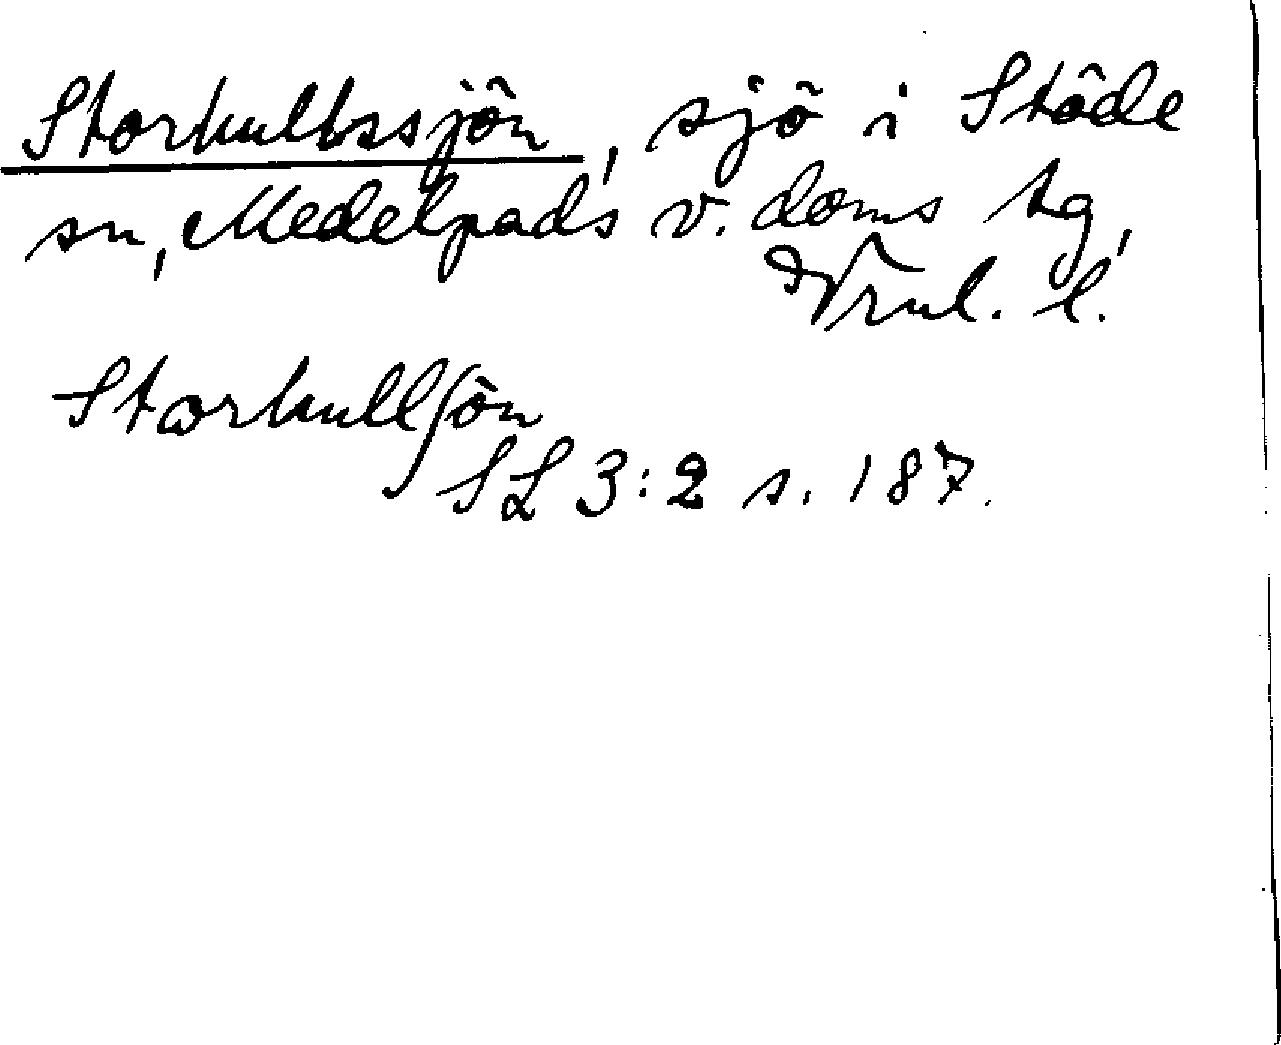 Storhultssjön, sjö i Stöde
sn, Medelpads v. doms tg,
Vrnl. l.
Storhullsön
SL 3:2 s. 187.